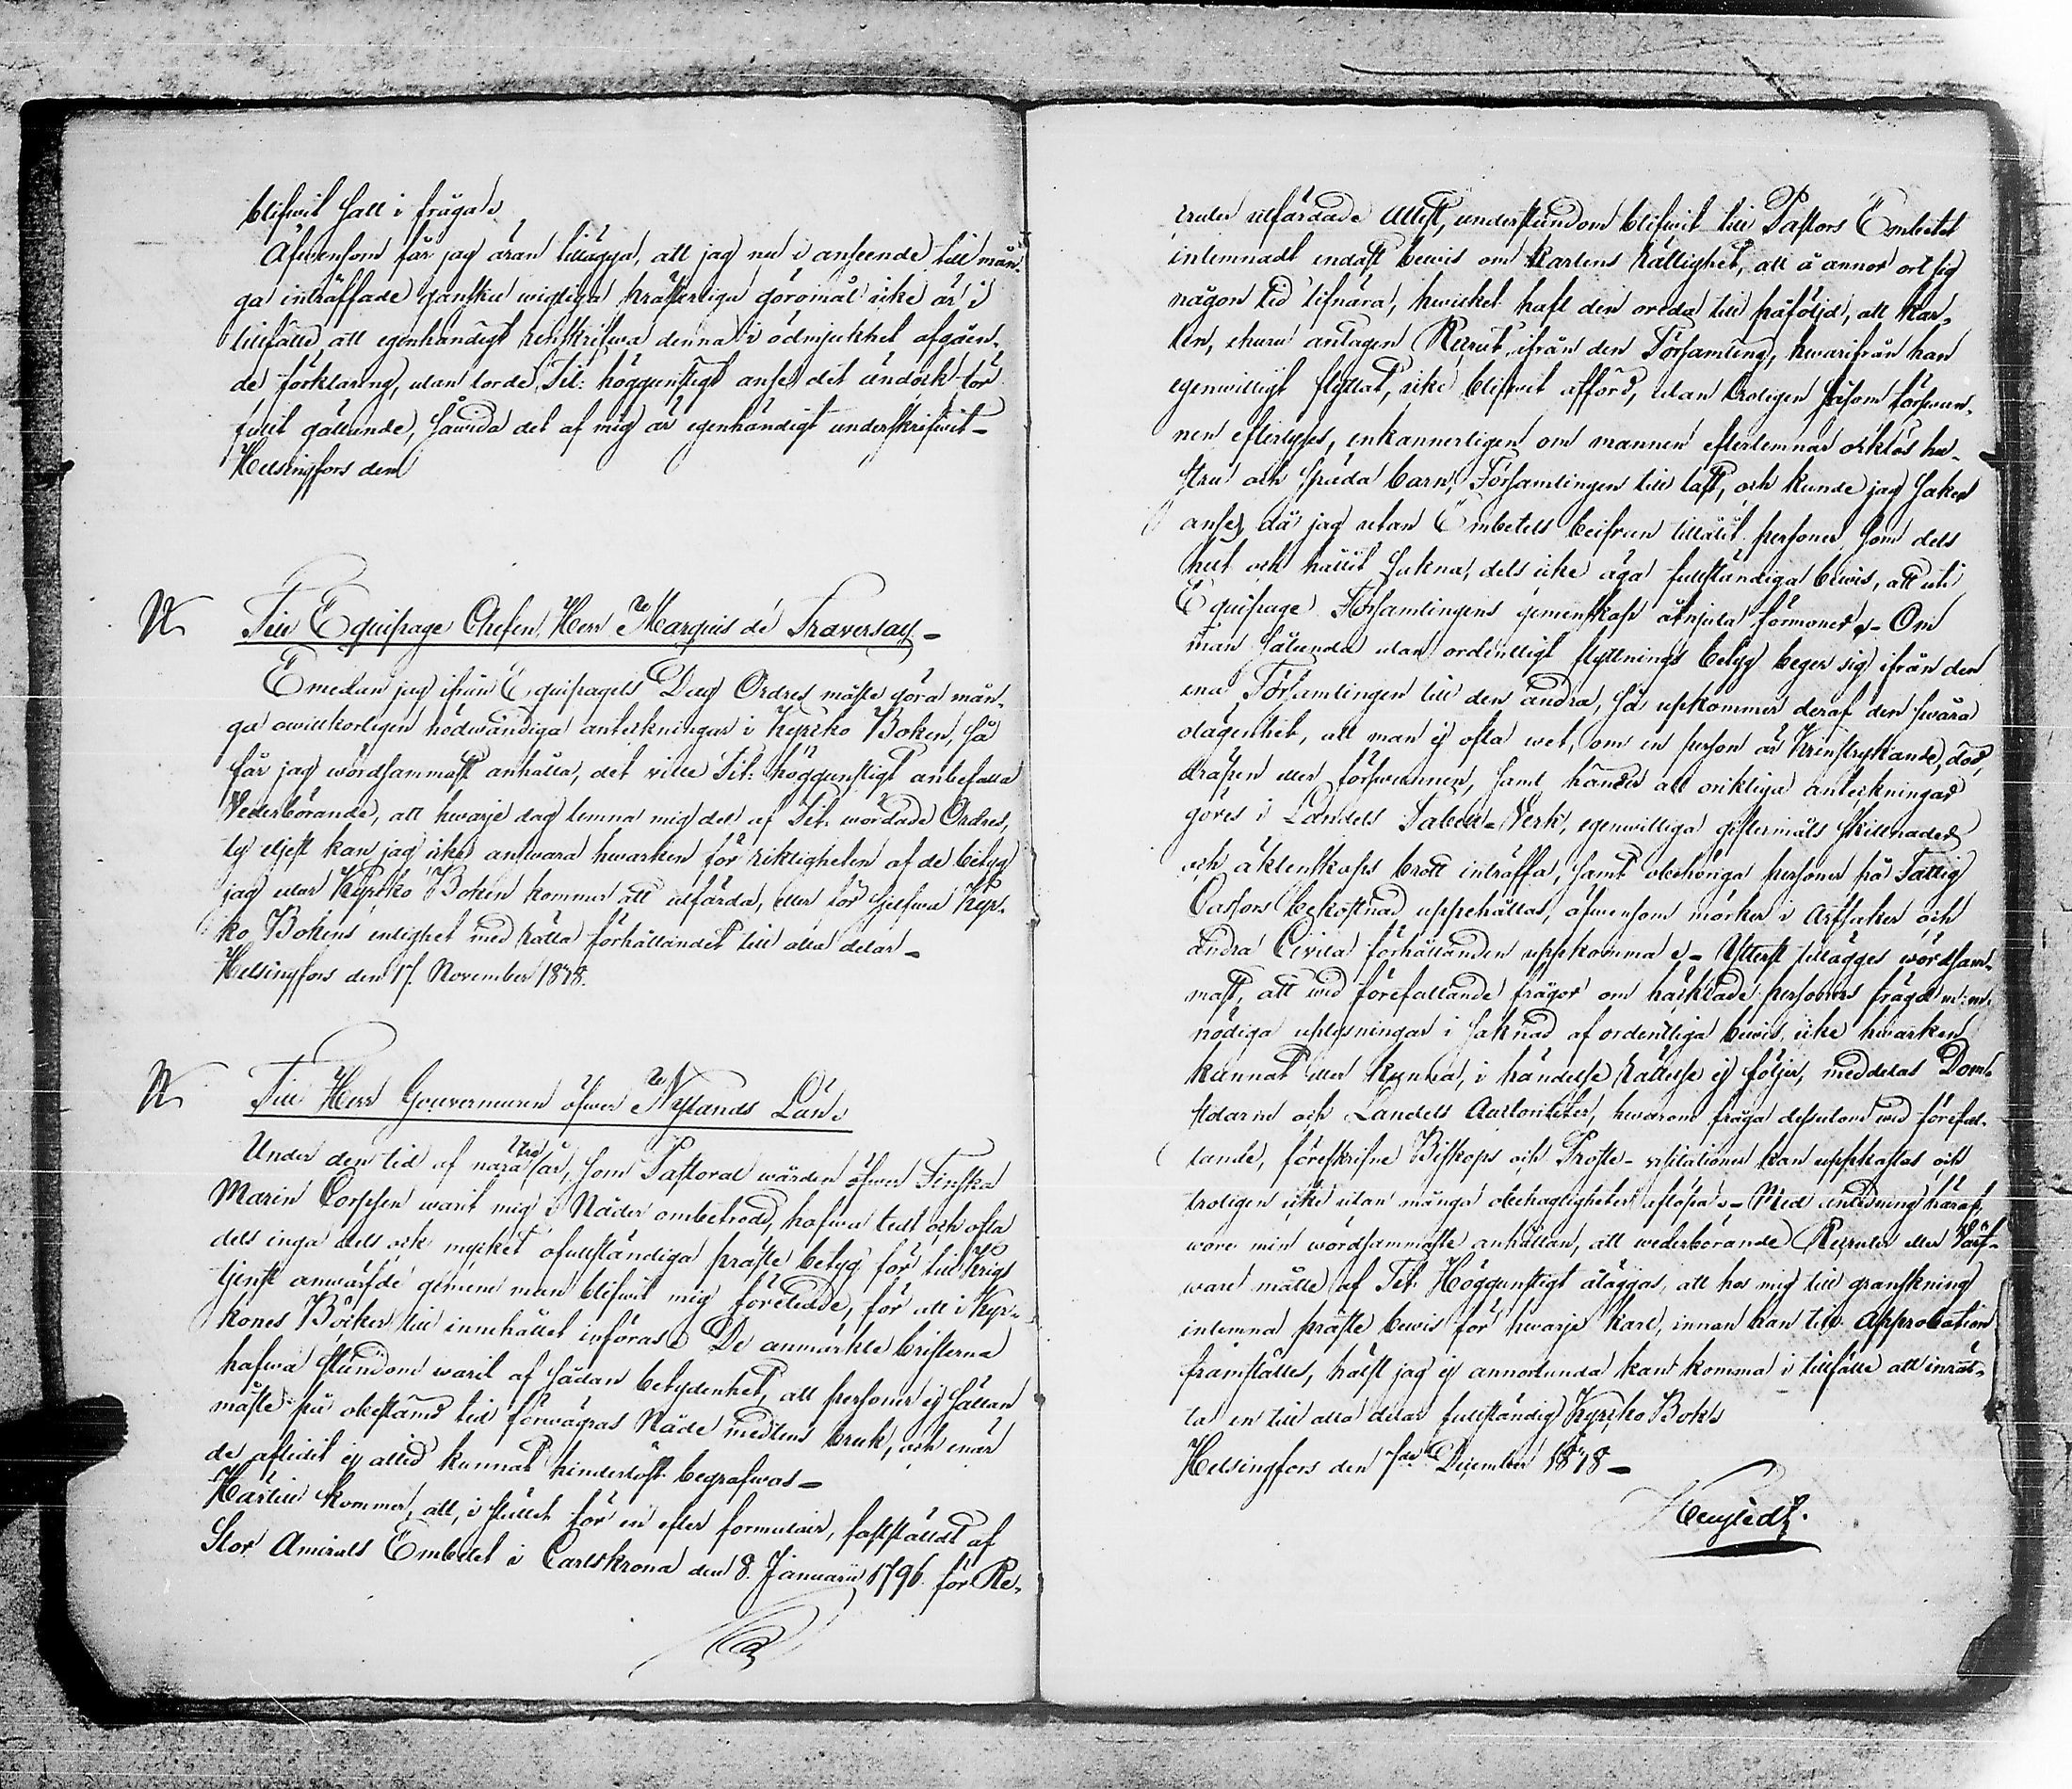 blifwit Satt i fråga.
Äfwensom får jag äran tillägga, att jag nu i anseende till mån-
ga inträffade ganska wigtiga prästerliga göromål icke är i
tillfälle att egenhändigt renskrifwa denna i ödmjukhet afgåen-
de förklaring, utan torde Tit: höggunstigt anse det ändock för
fullt gällande, Såwida det af mig är egenhändigt underskrifwit –
Helsingfors den
Till Equipage Chefen, Herr Marquis de Traversay –
Emedan jag ifrån Equipagets Dag Ordres måste göra mån-
ga owillkorligen nödwändiga anteckningar i Kyrko Boken, så
får jag wördsammast anhålla, det wille Tit: höggunstigt anbefalla
Wederbörande, att hwarje dag lemna mig del af Tit: wördade Ordres,
ty eljest kan jag icke answara hwarken för riktigheten af de betyg
jag utur Kyrko Boken kommer att utfärda, eller för sjelfwa Kyr-
ko Bokens enlighet med rätta förhållandet till alla delar –
Helsingfors den 17. November 1818.
Till Herr Gouverneuren öfwer Nylands Län.
Under den tid af nära Tre år, som Pastoral wården öfwer Finska
Marin Corpsen warit mig i Nåder ombetrodd, hafwa tidt och ofta
dels inga dels ock mycket ofullständiga präste betyg för till Krigs
tjenst anwärfde gemene man blifwit mig företedde, för att i Kyr-
kones Böcker till innehållet införas. De anmärkte bristerna
hafwa stundom warit af sådan betydenhet, att personer ej sällan
måste på obestämd tid förwägras Nåde medlens bruk, och när
de aflidit ej alltid kunnat hinderlöst begrafwas –
Härtill kommer, att, i stället för en efter formulair, fastställdt af
Stor Amirals Embetet i Carlskrona den 8. Januarii 1796. för Re-
kruter utfärdade Attest, understundom blifwit till Pastors Embetet
inlemnadt endast bewis om Karlens rättighet, att å annor ort sig
någon tid lifnära, hwilket haft den oreda till påföljd, att Kar-
len, ehuru antagen Recrut, ifrån den Församling, hwarifrån han
egenwilligt flyttat, icke blifwit afförd, utan troligen såsom förswun-
nen efterlyses, enkannerligen om mannen efterlemnar wärklös hu-
stru och späda barn, Församlingen till last, och kunde jag saker
anses, då jag utan Embetets beifran tillåtit personer som dels
helt och hållit sakna, dels icke äga fullständiga bewis, att uti
Equipage Församlingens gemenskap åtnjuta förmoner. – Om
man sålunda utan ordentligt flyttnings betyg beger sig ifrån den
ena Församlingen till den andra, så upkommer deraf den swåra
olägenhet, att man ej ofta wet, om en person är kringstrykande, död,
dräpen eller förswunnen, samt händer att oriktiga anteckningar
göres i Landets Tabell-Verk, egenwilliga giftermåls skillnader
och äktenskaps brott inträffa, samt obehöriga personer på Fattig
Cassors bekostnad uppehållas, äfwensom mörker i Arfsaker och
andra Civila förhållanden uppkomma. – Ytterst tillägges wördsam-
mast, att wid förefallande frågor om häcktade personers frägd m: m:
nödiga uplysningar i saknad af ordentliga bewis, icke hwarken
kunnat eller kunna, i händelse rättelse ej följer, meddelas Dom-
stolarne och Landets Auctoriteter, hwarom fråga dessutom wid förefal-
lande, föreskrifne Biskops och Proste-visitationer kan uppkastas och
troligen icke utan många obehagligheter aflöpa. – Med anledning häraf,
wore min wördsammaste anhållan, att wederbörande Recruter eller Värf-
ware måtte af Tit: Höggunstigt åläggas, att hos mig till granskning
inlemna präste bewis för hwarje Karl, innan han till Approbation
framställes, hälst jag ej annorlunda kan komma i tillfälle att inrät-
ta en till alla delar fullständig Kyrko Bok.
Helsingfors den 7de December 1818 –